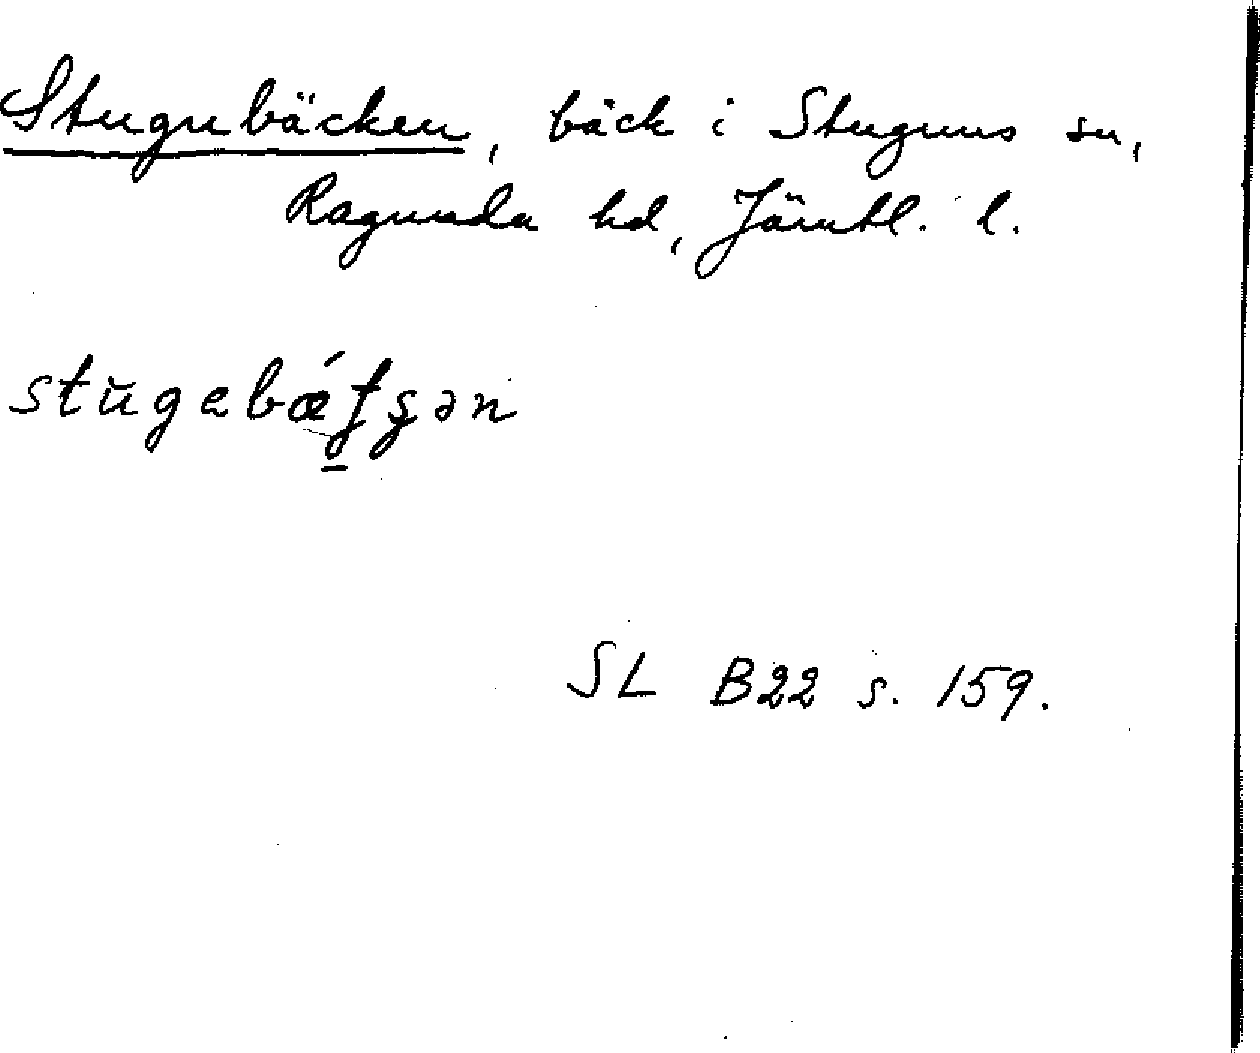 Stugubäcken, bäck i Stuguns sn,
Ragunda hd, Jämtl. l.
SL B22 s. 159.